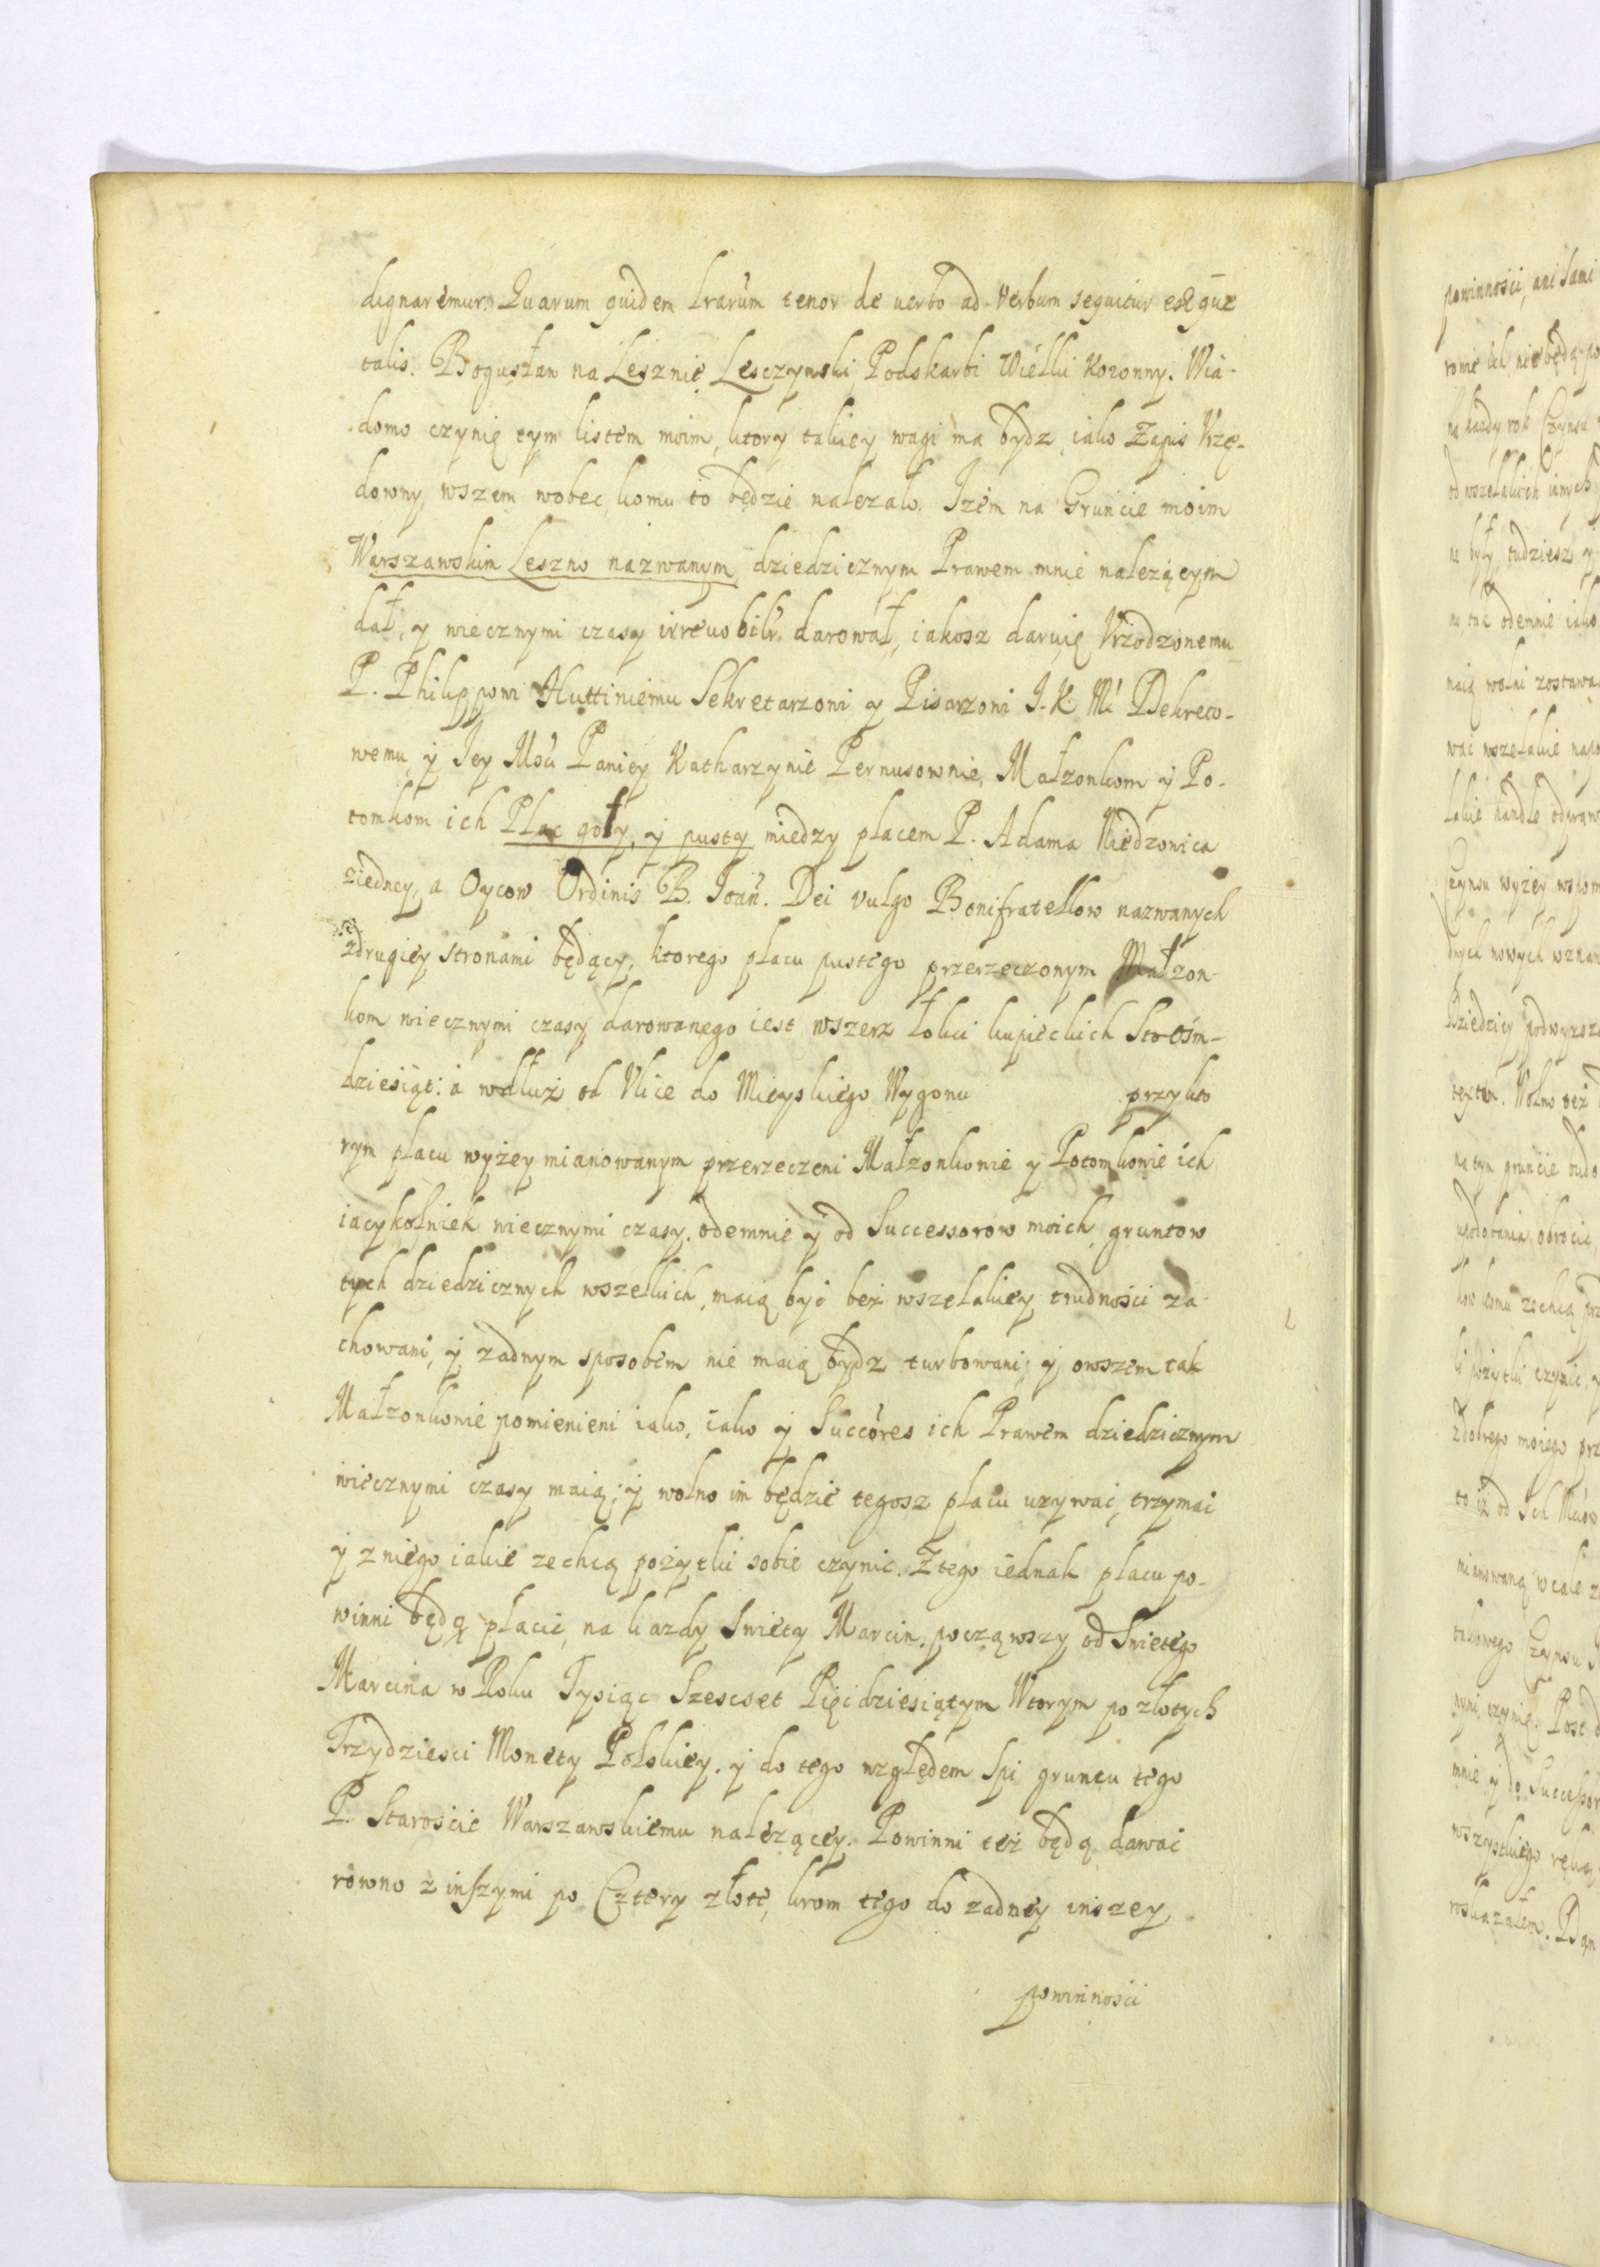 dignaremur. Quarum quidem lrarum tenor de verbo ad verbum sequitur estque
talis. Bogusław na Lesznie Lesczynski Podskarbi Wielki Koronny. Wia-
domo czynię tym listem moim, ktory takiey wagi ma bydz, iako Zapis Vrzę-
downy, wszem wobec, komu to będzie nalezało. Izem na Gruncie moim
Warszawskim Leszno nazwanym dziedzicznym Prawem mnie nalezącym
dał, y wiecznymi czasy irreuobilr. darował, iakosz daruię Vrodzonemu
P. Philippowi Huttiniemu Sekretarzowi y Pisarzowi J. K. Mci Dekreto-
wemu, y Jey Msci Paniey Katharzynie Pernusownie, Małzonkom y Po-
tomkom ich Plac goły, y pusty miedzy placem P. Adama
ziedney, a Oycow Ordinis B. Joan. Dei vulgo Bonifratellow nazwanych
zdrugiey stronami będący, ktorego placu pustego przerzeczonym Małzon-
kom wiecznymi czasy darowanego iest wszerz łokci kupieckich Sto ośm-
dziesiąt: a wdłuż od Vlice do Mieyskiego Wygonu przykto
rym placu wyżey mianowanym przerzeczeni Małzonkowie y Potomkowie ich
iacykolniek wiecznymi czasy. odemnie y od Successorow moich, gruntow
tych dziedzicznych wszelkich, maią być bez wszelakiey trudności za-
chowani, y zadnym sposobem nie maią bydz turbowani; y owszem tak
Małzonkowie pomienieni iako, iako y Succores ich Prawem dziedzicznym
wiecznymi czasy maią; y wolno im będzie tegosz placu uzywać, trzymać
y z niego iakie zechcą pożytki sobie czynic. Z tego iednak placu po-
winni będą płacić, na kazdy Swięty Marcin, począwszy od Swiętego
Marcina w Roku Tysiąc Szescset Pięcdziesiątym Wtorym po złotych
Trzydziesci Monety Polskiey. y do tego względem Spi gruntu tego
P. Starościć Warszawskiemu nalezącey. Powinni też będą dawać
rowno z inszymi po Cztery złote, krom tego do zadney inszey
powinnosci
powinności, ani sami
na kazdy rok Czynsu
od wszelakich innych
ne były, tudziesz y
no, tak odemnie iako
maią wolni zostawac
Czynsu wyżey
dnych nowych
textem. Wolno też
na tym gruncie
zdobrego moiego
to iż od Ich Mciow
mianowaną wcale
takowego Czynsu
nymi czynię. Post
mnie y do Successor
wszystkiego ręką
roskazałem. Dan